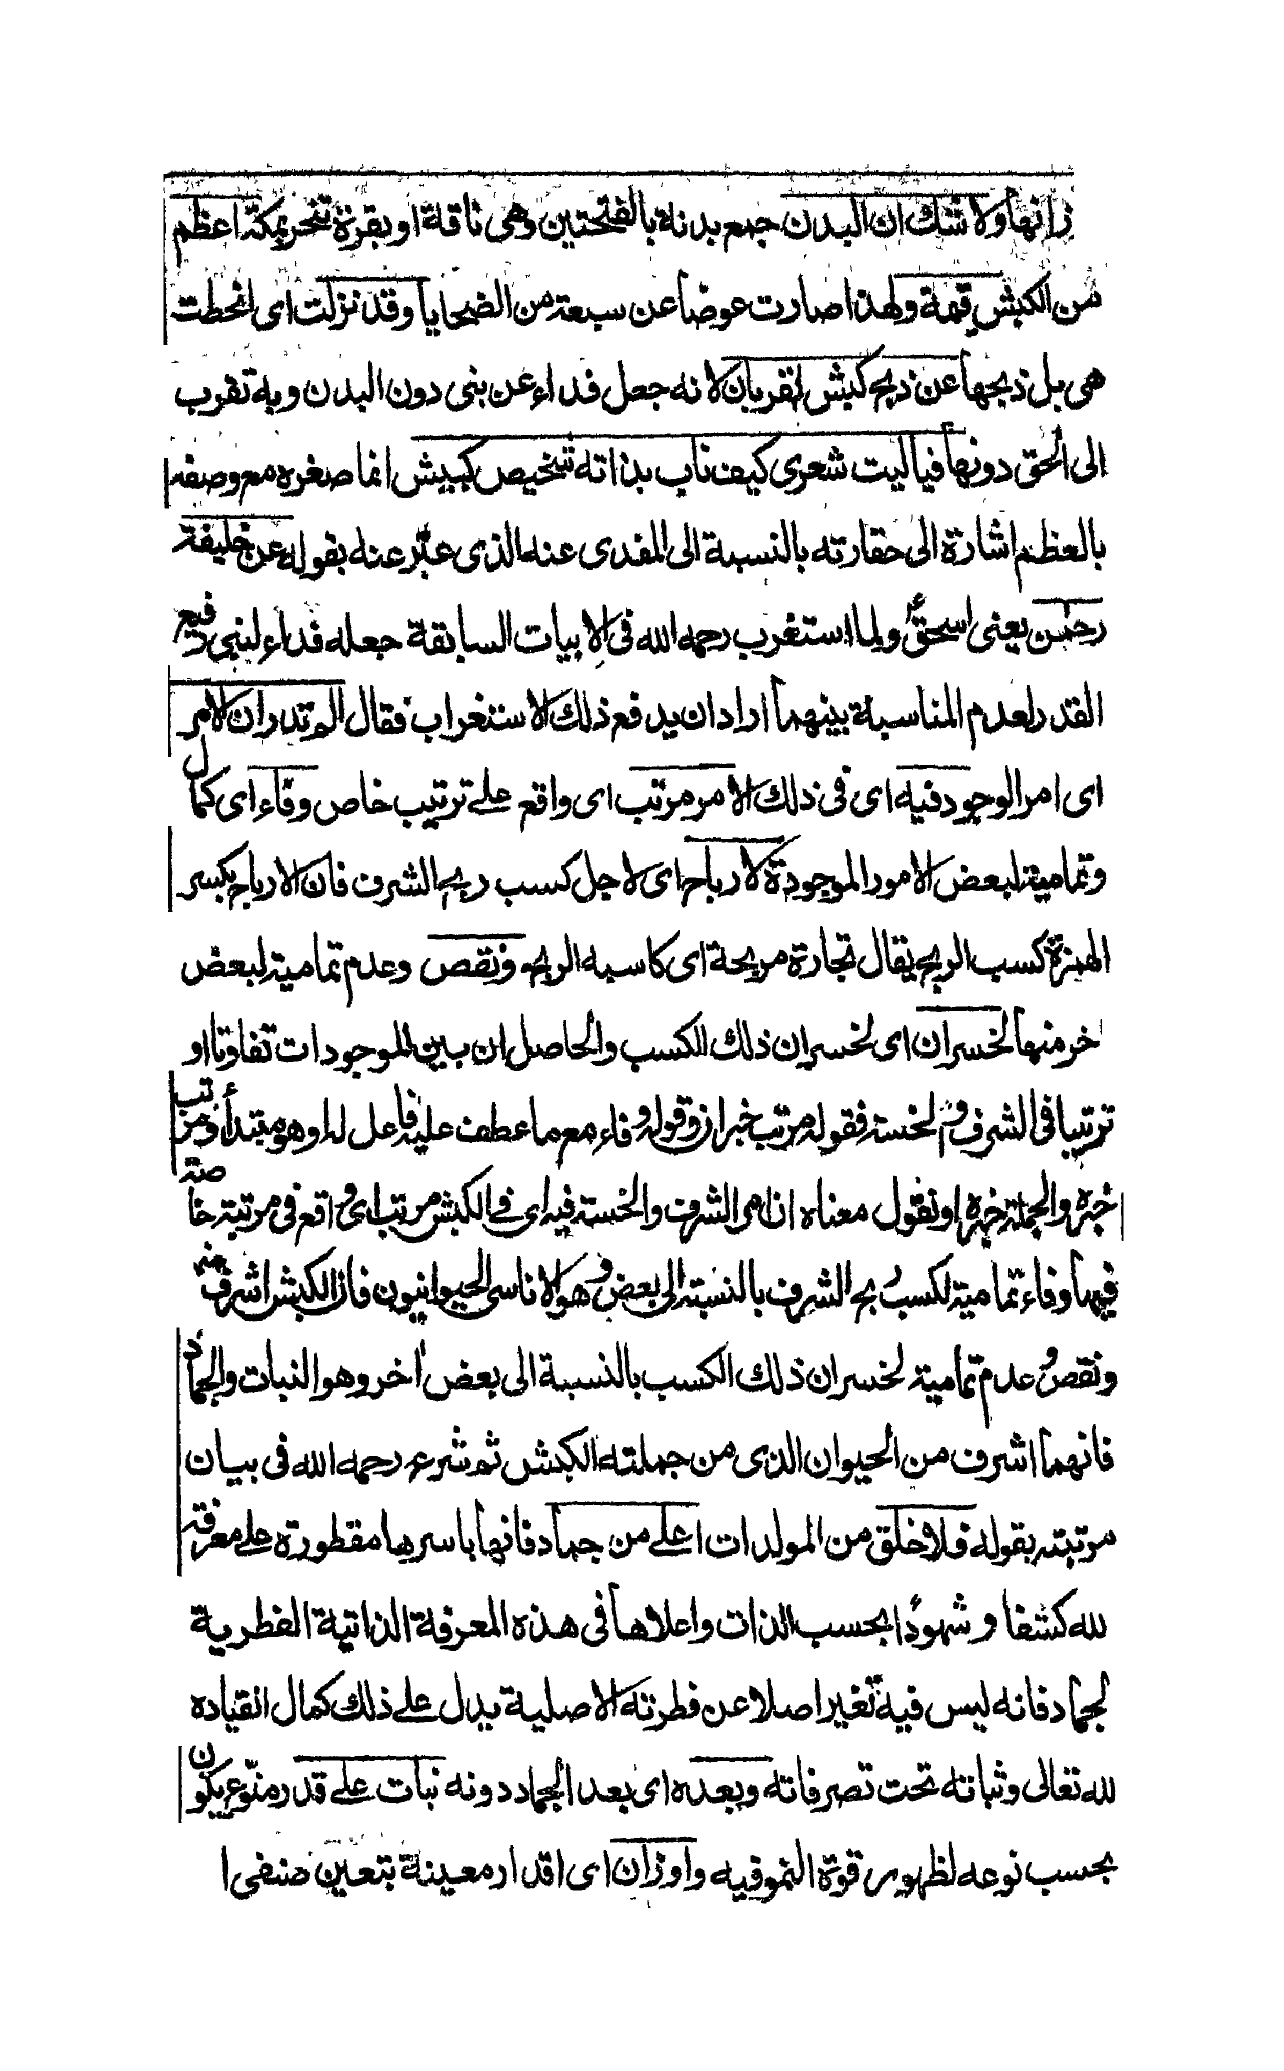 زانها ولا شك ان البدن جمع بدنة بالفتحتين وهى ناقة او بقرة تنحر بمكة اعظم
من الكبش قيمة ولهذا صارت عوضا عن سبعة من الضحايا وقد نزلت اى انحطت
هى بل ذبحها عن ذبح كبش لقربان لانه جعل فداء عن بنى دون البدن وبه تقرب
الى الحق دونها فيا ليت شعرى كيف ناب بذاته شخيص كبيش انما صغره مع وصفه
بالعظم اشارة الى حقارته بالنسبة الى المفدى عنه الذى عبّر عنه بقوله عن خليفة
رحمن يعنى اسحق ولما استغرب رحمه الله فى الابيات السابقة جعله فداء لنبى رفيع
القدر لعدم المناسبة بينهما اراد ان يدفع ذلك الاستغراب فقال الم تدر ان الامر
اى امر الوجود فيه اى فى ذلك الامر مرتب اى واقع على ترتيب خاص وفاء اى كمال
وتمامية لبعض الامور الموجودة لارباح اى لاجل كسب ربح الشرف فان الارباح بكسر
الهمزة كسب الربح يقال تجارة مربحة اى كاسبه الربح ونقص وعدم تمامية لبعض
اخر منها لخسران اى لخسران ذلك الكسب والحاصل ان بين الموجودات تفاوتا او
ترتيبا فى الشرف والخسة فقوله مرتب خبر ان وقوله وفاء مع ما عطف عليه فاعل له او هو مبتدأ ومرتب
خبره والجملة خبره او نقول معناه ان امر الشرف والخسة فيه اى فى الكبش مرتب اى واقع فى مرتبة خاصة
فيها وفاء تمامية لكسب ربح الشرف بالنسبة الى بعض وهو الاناسى الحيوانيون فان الكبش اشرف منه
ونقص وعدم تمامية لخسران ذلك الكسب بالنسبة الى بعض اخر وهو النبات والجماد
فانهما اشرف من الحيوان الذى من جملته الكبش ثم شرع رحمه الله فى بيان
مرتبته بقوله فلا خلق من المولدات اعلى من جماد فانها باسرها مفطورة على معرفة
لله كشفا وشهودا بحسب الذات واعلاها فى هذه المعرفة الذاتية الفطرية
لجماد فانه ليس فيه تغير اصلا عن فطرته الاصلية يدل على ذلك كمال انقياده
لله تعالى وثباته تحت تصرفاته وبعده اى بعد الجماد دونه نبات على قدر منوع يكون
بحسب نوعه لظهور قوة النمو فيه واوزان اى اقدار معينة بتعين صنفى ا